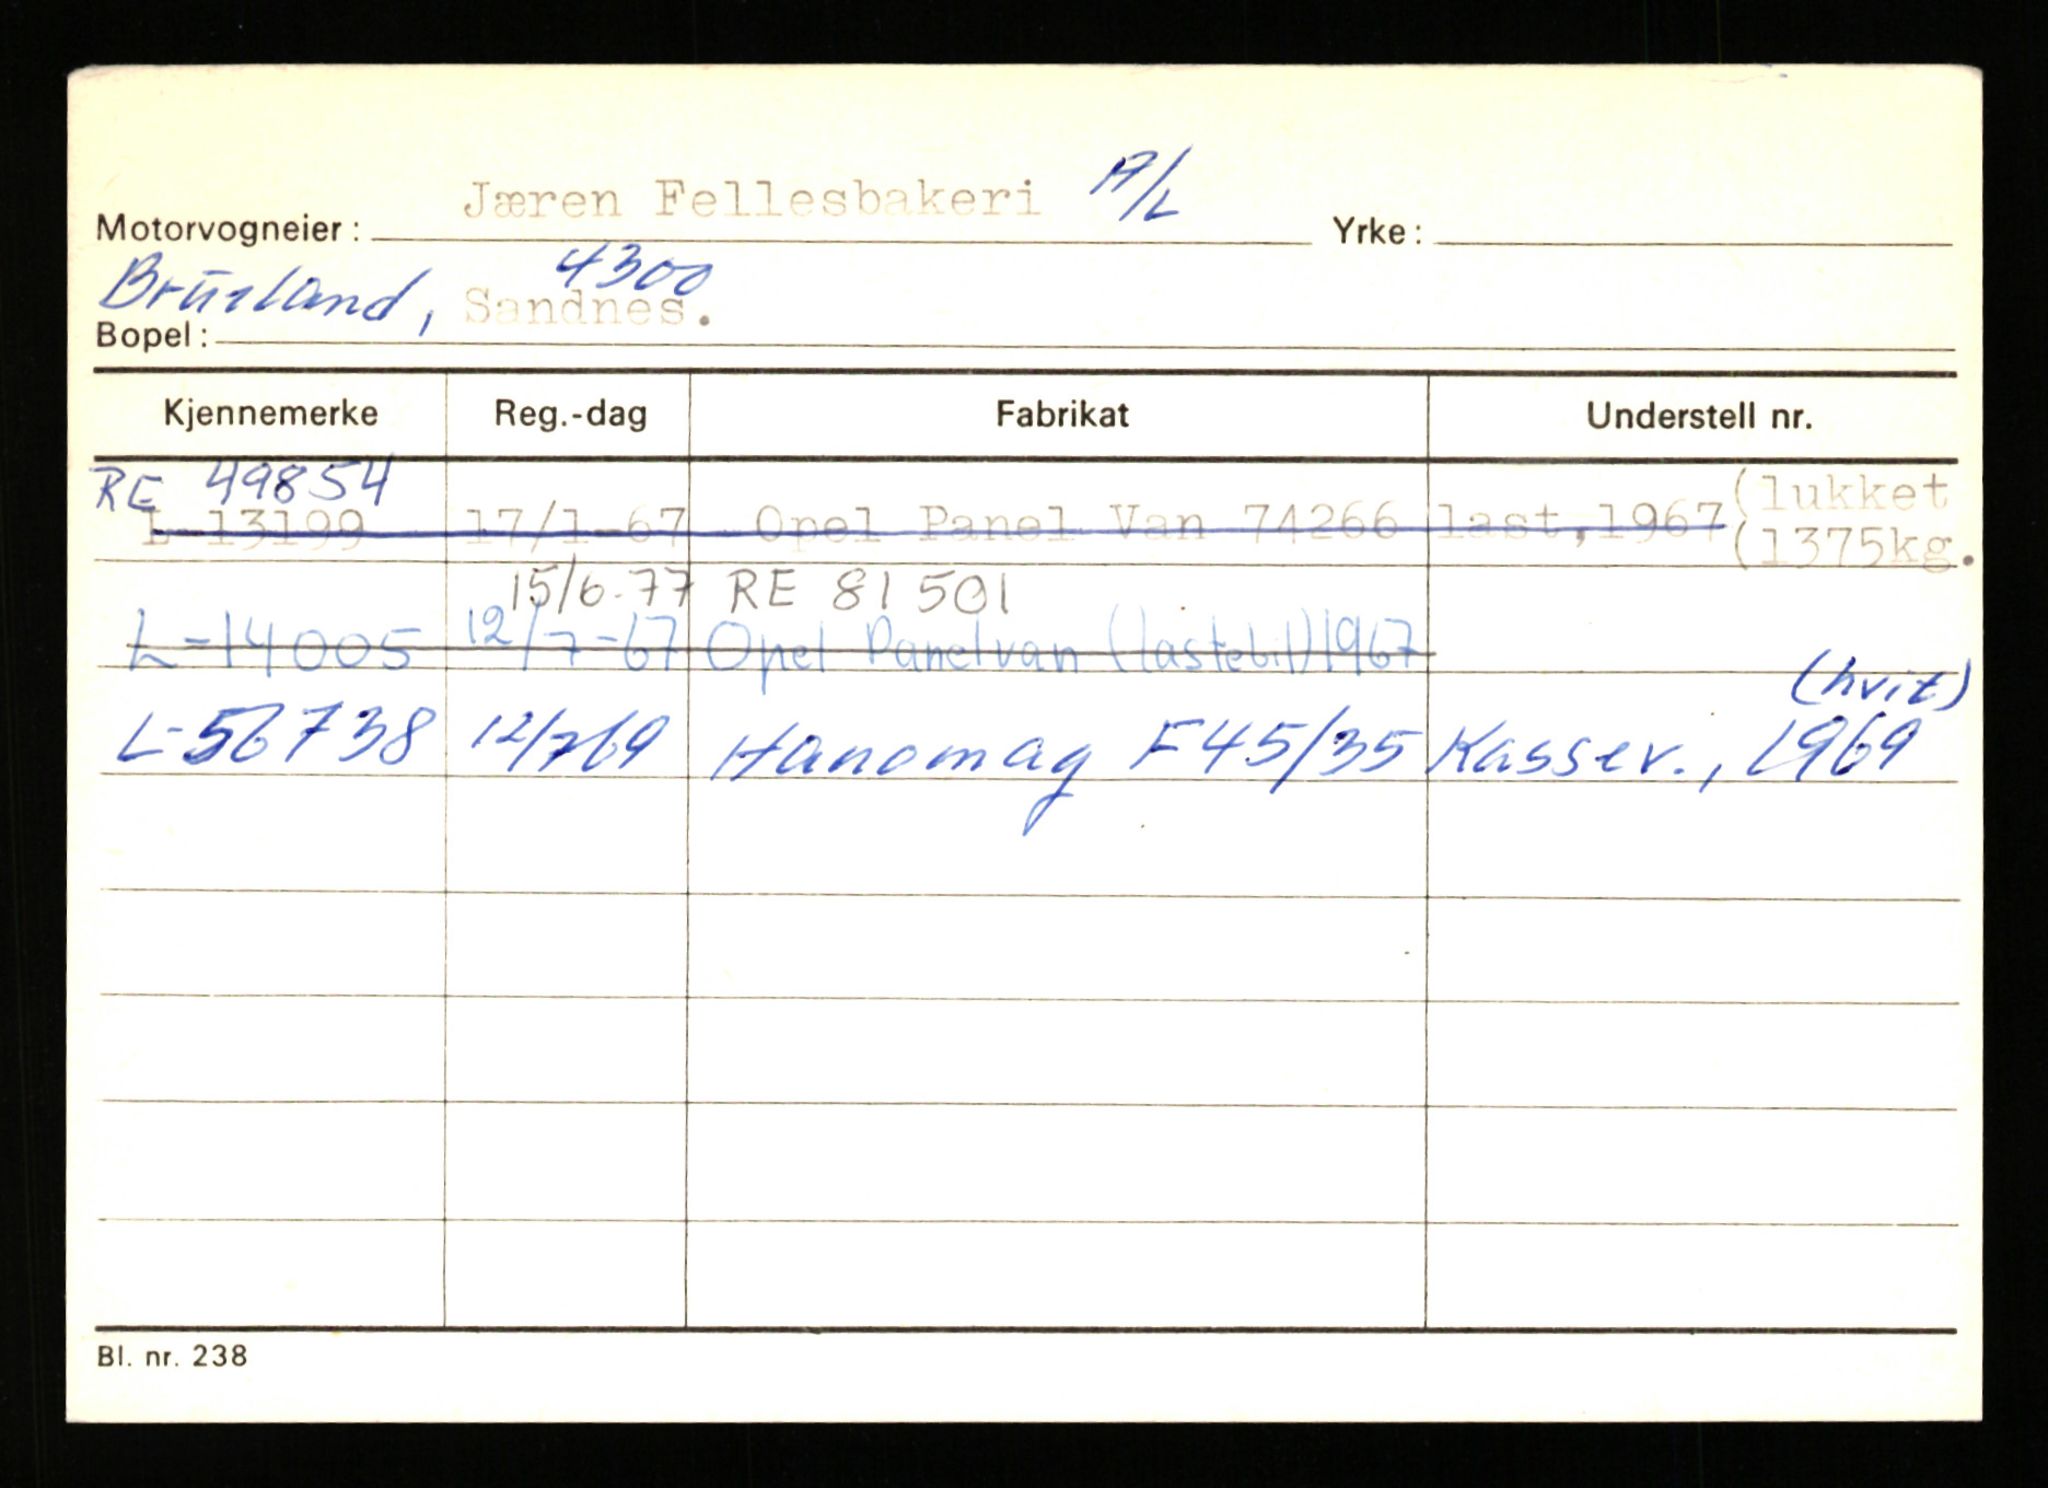 Jæren Fellesbakeri A/L
Motorvogneier: Yrke:
4300
Brueland, Sandnes.
Bopel:
Kjennemerke Reg.-dag Fabrikat Understell nr.
RE 49854 (lukket
L-13199 17/1-67 Opel Panel Van 74266 last,1967 (1375kg.
15/6-77 RE 81501
L-14005 12/7-67 Opel Panelvan (lastebil) 1967
(hvit)
L-56738 12/769 Hanomag F45/35 Kassev., 1969
Bl. nr. 238